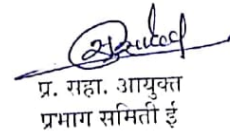 प्र. सहा. आयुक्त
प्रभाग समिती ई